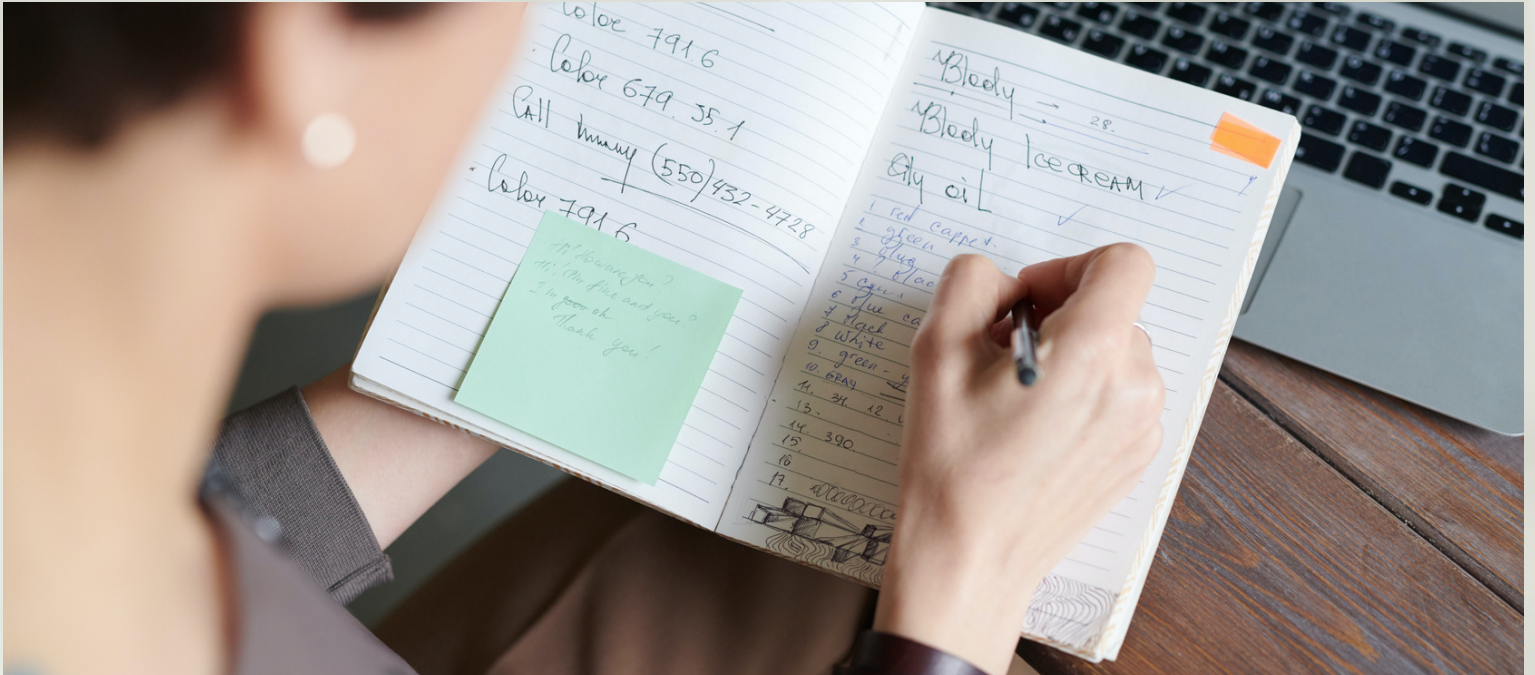 Color 791.6
Color 679. 35. 1
Call (550)432-4728
Color 791 6
Hi! How are you?
Hi! I'm fine and you?
I'm ok
Thank you!
Blody
28.
Blody Icecream
oil
1 red
2 green
3
4
5
6 blue ca
7 black
8 white
9. green -
10. GRAY
11. 34. 12.
13.
14. 390.
15.
16
17.